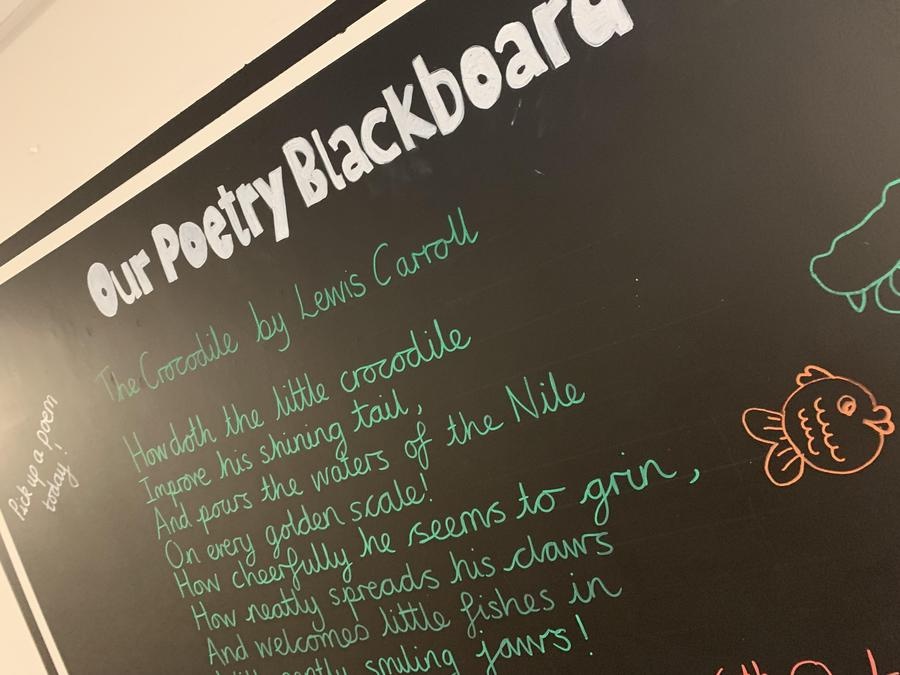 Our Poetry Blackboard
The Crocodile by Lewis Carroll
How doth the little crocodile
Improve his shining tail,
And pours the waters of the Nile
On every golden scale!
How cheerfully he seems to grin,
How neatly spreads his claws
And welcomes little fishes in
gently smiling jaws!
Pick up a poem
today!